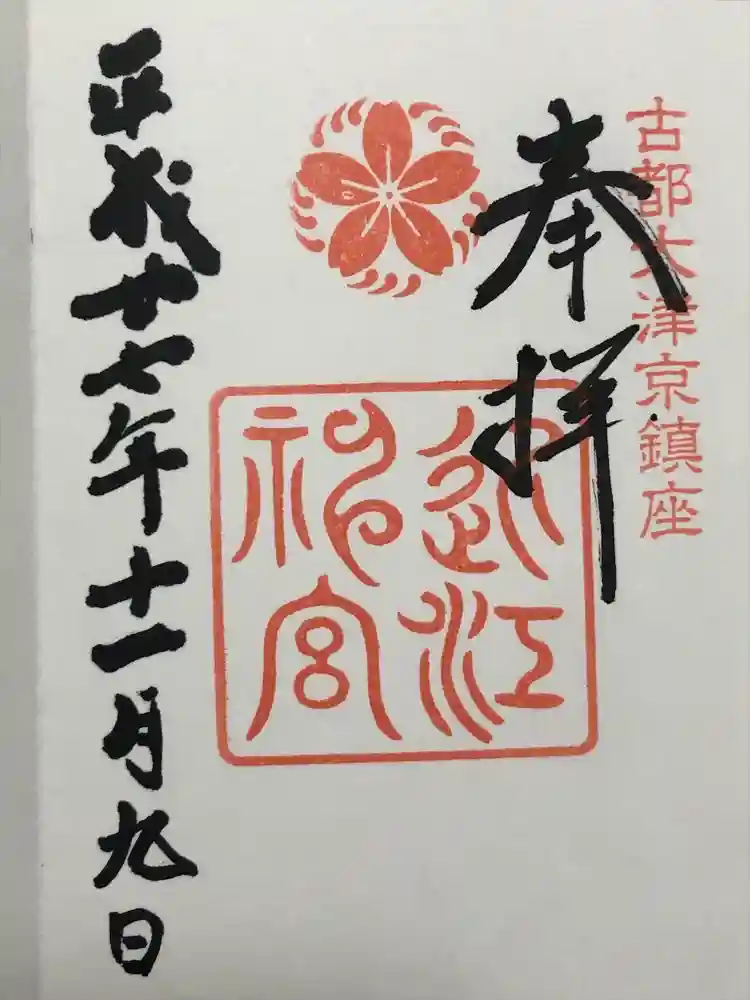 古都大津京鎮座
奉拝
近江
神宮
平成廿七年十一月九日